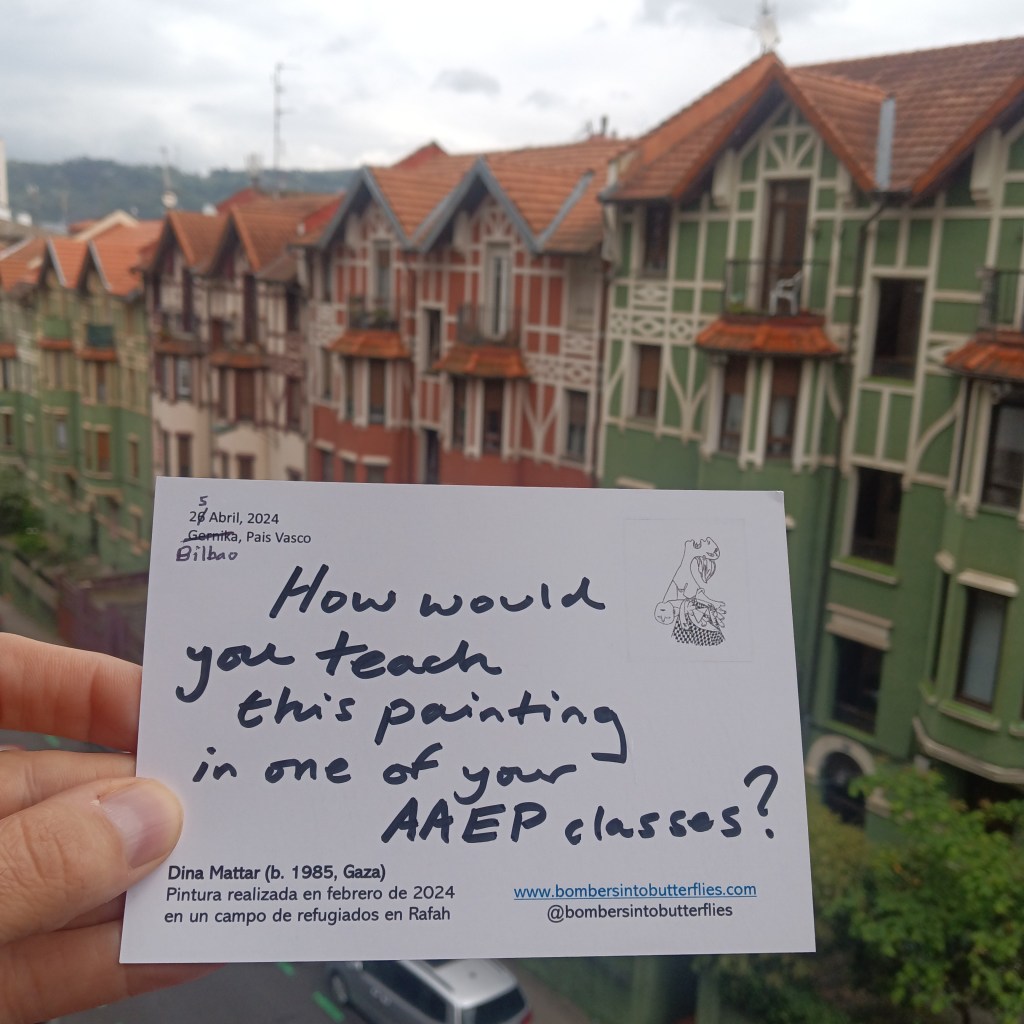 5
26 Abril, 2024
Gernika, Pais Vasco
Bilbao
How would
you teach
this painting
in one of your
AAEP classes?
Dina Mattar (b. 1985, Gaza)
Pintura realizada en febrero de 2024
en un campo de refugiados en Rafah
www.bombersintobutterflies.com
@bombersintobutterflies